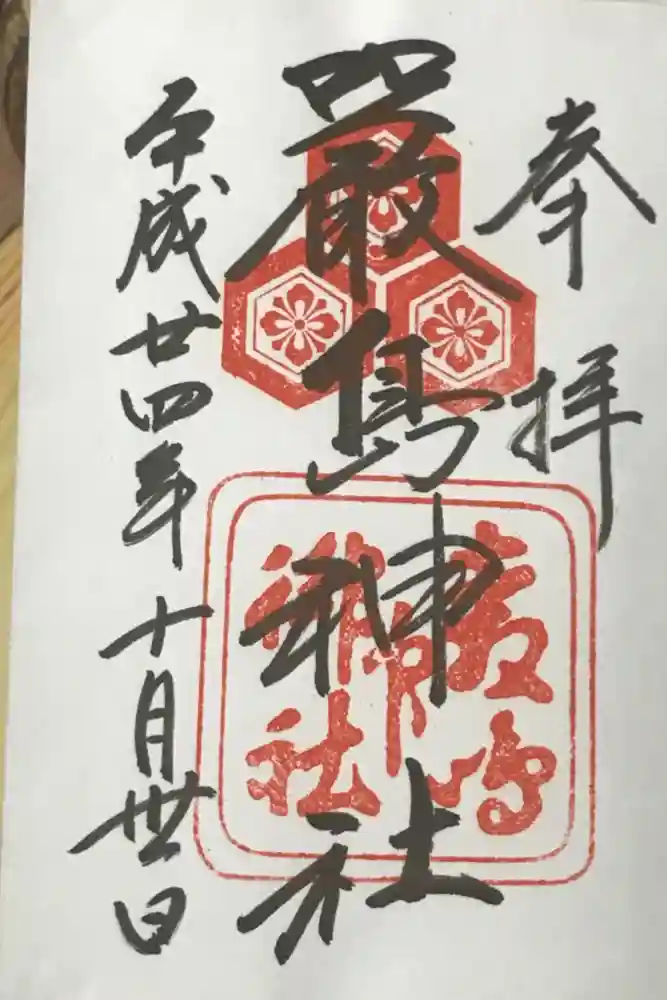 奉拝
嚴島神社
嚴嶋神社
平成廿四年十月卅日